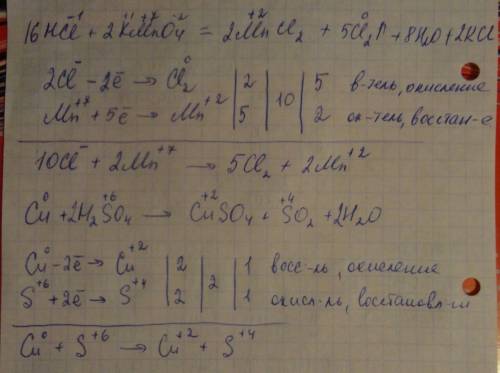 16HCl⁻¹ + 2K⁺¹Mn⁺⁷O₄⁻² = 2Mn⁺²Cl₂ + 5Cl₂⁰↑ + 8H₂O + 2KCl
2Cl⁻ - 2ē → Cl₂⁰ | 2 | 10 | 5 в-тель, окисление
Mn⁺⁷ + 5ē → Mn⁺² | 5 | | 2 ок-тель, восстан-е
10Cl⁻ + 2Mn⁺⁷ → 5Cl₂ + 2Mn⁺²
Cu⁰ + 2H₂S⁺⁶O₄ → Cu⁺²SO₄ + S⁺⁴O₂ + 2H₂O
Cu⁰ - 2ē → Cu⁺² | 2 | 2 | 1 восс-ль, окисление
S⁺⁶ + 2ē → S⁺⁴ | 2 | | 1 окисл-ль,
Cu⁰ + S⁺⁶ → Cu⁺² + S⁺⁴